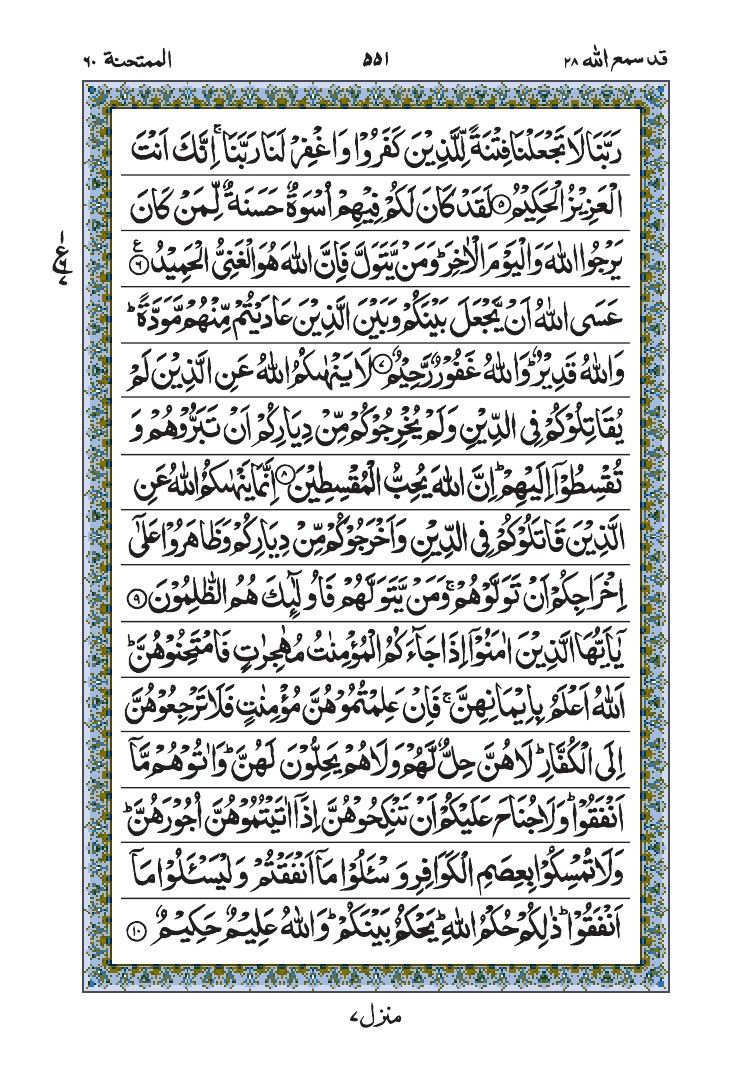 قد سمع الله ٢٨
٥٥١
الممتحنة ٦٠
رَبَّنَا لَا تَجْعَلْنَا فِتْنَةً لِّلَّذِيْنَ كَفَرُوْا وَاغْفِرْ لَنَا رَبَّنَا ۚ اِنَّكَ اَنْتَ
الْعَزِيْزُ الْحَكِيْمُ ۝٥ لَقَدْ كَانَ لَكُمْ فِيْهِمْ اُسْوَةٌ حَسَنَةٌ لِّمَنْ كَانَ
يَرْجُوا اللّٰهَ وَالْيَوْمَ الْاٰخِرَ ؕ وَمَنْ يَّتَوَلَّ فَاِنَّ اللّٰهَ هُوَ الْغَنِىُّ الْحَمِيْدُ ۝٦ ع
عَسَى اللّٰهُ اَنْ يَّجْعَلَ بَيْنَكُمْ وَبَيْنَ الَّذِيْنَ عَادَيْتُمْ مِّنْهُمْ مَّوَدَّةً ؕ
وَاللّٰهُ قَدِيْرٌ ؕ وَاللّٰهُ غَفُوْرٌ رَّحِيْمٌ ۝٧ لَا يَنْهٰىكُمُ اللّٰهُ عَنِ الَّذِيْنَ لَمْ
يُقَاتِلُوْكُمْ فِى الدِّيْنِ وَلَمْ يُخْرِجُوْكُمْ مِّنْ دِيَارِكُمْ اَنْ تَبَرُّوْهُمْ وَ
تُقْسِطُوْٓا اِلَيْهِمْ ؕ اِنَّ اللّٰهَ يُحِبُّ الْمُقْسِطِيْنَ ۝٨ اِنَّمَا يَنْهٰىكُمُ اللّٰهُ عَنِ
الَّذِيْنَ قَاتَلُوْكُمْ فِى الدِّيْنِ وَاَخْرَجُوْكُمْ مِّنْ دِيَارِكُمْ وَظَاهَرُوْا عَلٰٓى
اِخْرَاجِكُمْ اَنْ تَوَلَّوْهُمْ ۚ وَمَنْ يَّتَوَلَّهُمْ فَاُولٰٓئِكَ هُمُ الظّٰلِمُوْنَ ۝٩
يٰٓاَيُّهَا الَّذِيْنَ اٰمَنُوْٓا اِذَا جَآءَكُمُ الْمُؤْمِنٰتُ مُهٰجِرٰتٍ فَامْتَحِنُوْهُنَّ ؕ
اَللّٰهُ اَعْلَمُ بِاِيْمَانِهِنَّ ۚ فَاِنْ عَلِمْتُمُوْهُنَّ مُؤْمِنٰتٍ فَلَا تَرْجِعُوْهُنَّ
اِلَى الْكُفَّارِ ؕ لَا هُنَّ حِلٌّ لَّهُمْ وَلَا هُمْ يَحِلُّوْنَ لَهُنَّ ؕ وَاٰتُوْهُمْ مَّآ
اَنْفَقُوْا ؕ وَلَا جُنَاحَ عَلَيْكُمْ اَنْ تَنْكِحُوْهُنَّ اِذَآ اٰتَيْتُمُوْهُنَّ اُجُوْرَهُنَّ ؕ
وَلَا تُمْسِكُوْا بِعِصَمِ الْكَوَافِرِ وَسْـَٔلُوْا مَآ اَنْفَقْتُمْ وَلْيَسْـَٔلُوْا مَآ
اَنْفَقُوْا ؕ ذٰلِكُمْ حُكْمُ اللّٰهِ ؕ يَحْكُمُ بَيْنَكُمْ ؕ وَاللّٰهُ عَلِيْمٌ حَكِيْمٌ ۝١٠
منزل ٧